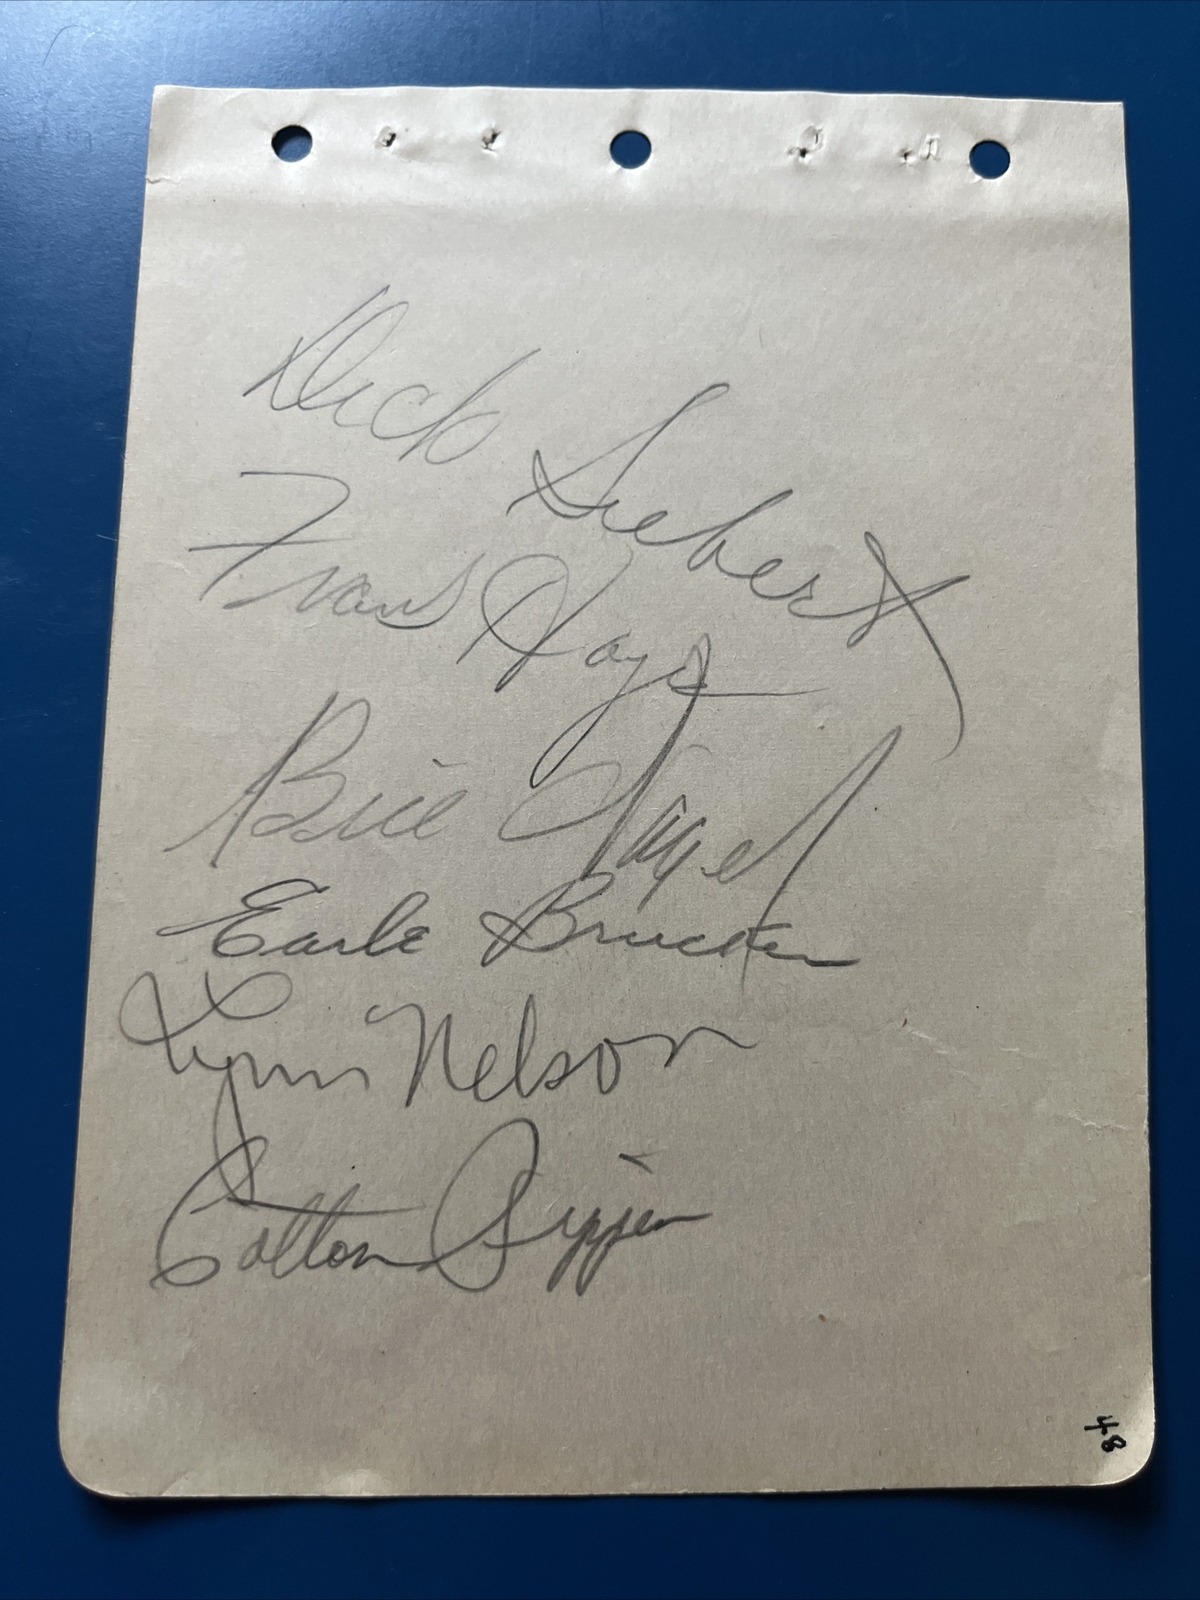 Dick Siebert
Frank Hayes
Bill Nagel
Earle Brucker
Lynn Nelson
Cotton Pippen
48